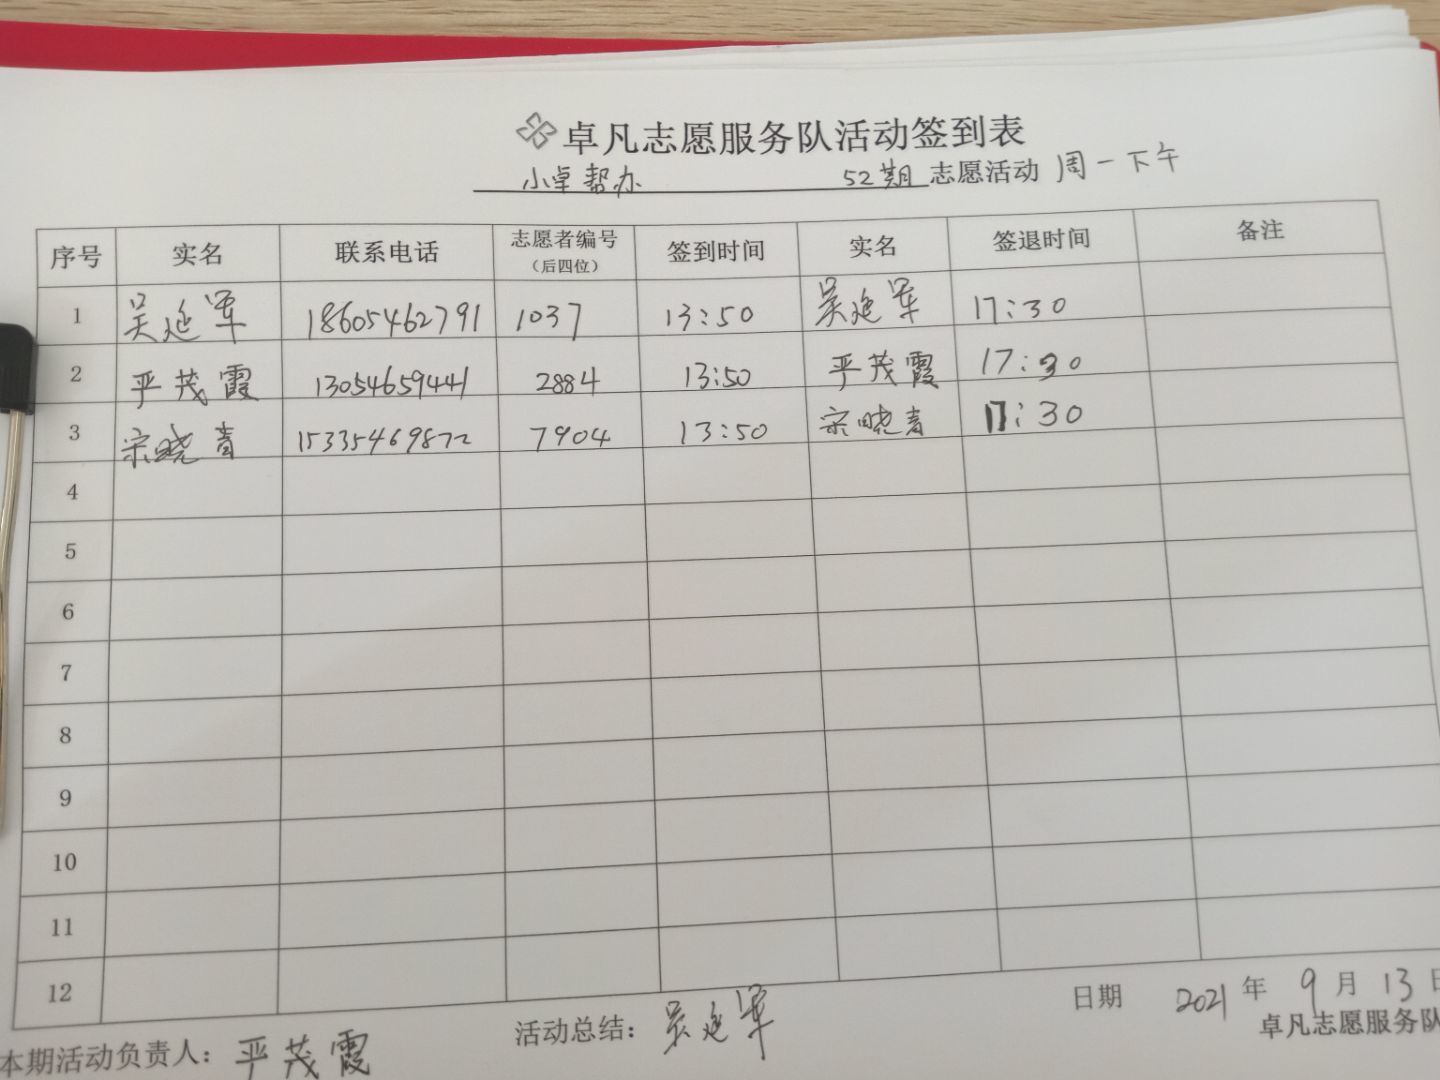 卓凡志愿服务队活动签到表
小卓帮办 52期 志愿活动 周一下午
序号 实名 联系电话 志愿者编号（后四位） 签到时间 实名 签退时间 备注
1 吴延军 18605462791 1037 13:50 吴延军 17:30
2 严茂霞 13054659441 2884 13:50 严茂霞 17:30
3 宗晓青 15335469872 7904 13:50 宗晓青 17:30
4
5
6
7
8
9
10
11
12
日期 2021年 9月 13日
本期活动负责人：严茂霞 活动总结：吴延军 卓凡志愿服务队